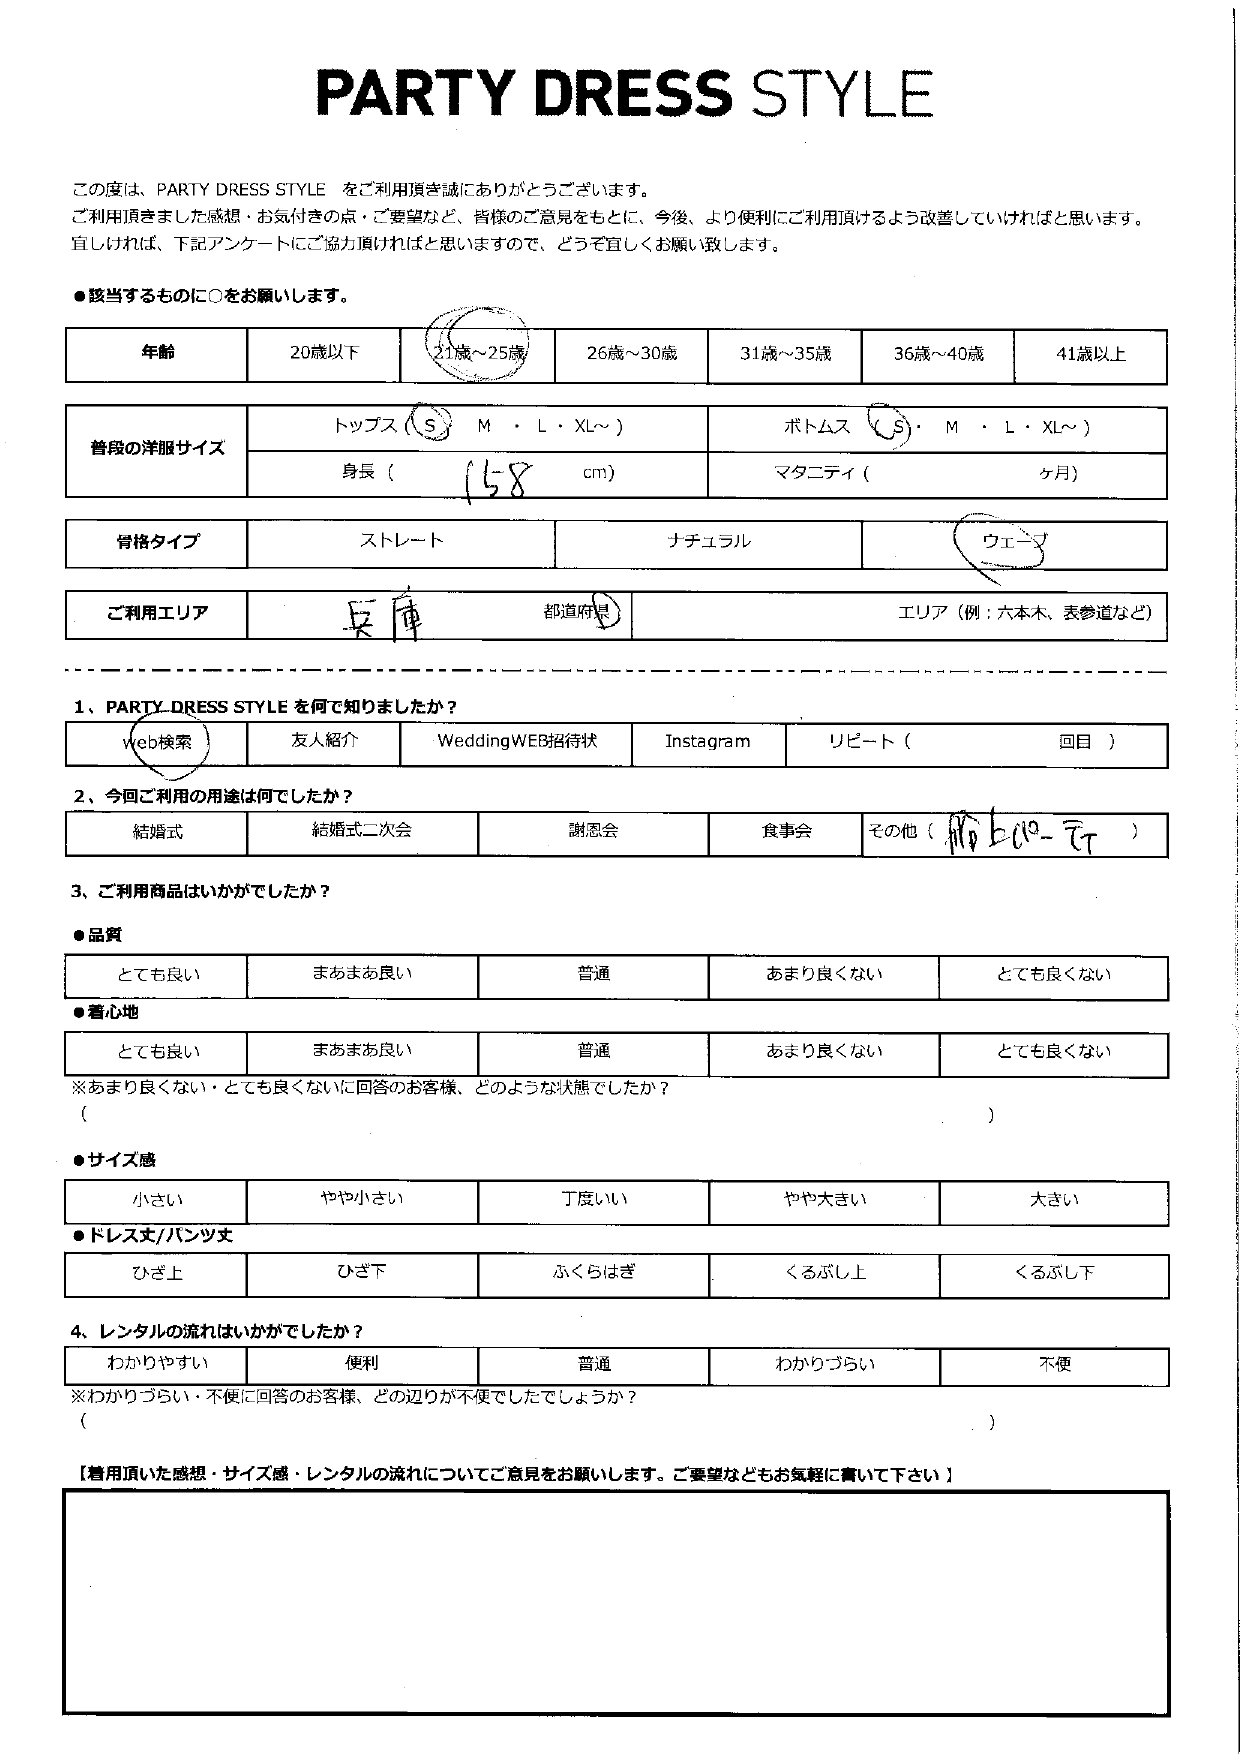 PARTY DRESS STYLE
この度は、PARTY DRESS STYLE をご利用頂き誠にありがとうございます。
ご利用頂きました感想・お気付きの点・ご要望など、皆様のご意見をもとに、今後、より便利にご利用頂けるよう改善していければと思います。
宜しければ、下記アンケートにご協力頂ければと思いますので、どうぞ宜しくお願い致します。
●該当するものに○をお願いします。
年齢 20歳以下 21歳～25歳 26歳～30歳 31歳～35歳 36歳～40歳 41歳以上
普段の洋服サイズ トップス ( S ・ M ・ L ・ XL～ ) ボトムス ( S ・ M ・ L ・ XL～ )
身長 ( 158 cm) マタニティ ( ヶ月)
骨格タイプ ストレート ナチュラル ウェーブ
ご利用エリア 兵庫 都道府県 エリア（例：六本木、表参道など）
1、PARTY DRESS STYLE を何で知りましたか？
web検索 友人紹介 WeddingWEB招待状 Instagram リピート ( 回目 )
2、今回ご利用の用途は何でしたか？
結婚式 結婚式二次会 謝恩会 食事会 その他 ( )
3、ご利用商品はいかがでしたか？
●品質
とても良い まあまあ良い 普通 あまり良くない とても良くない
●着心地
とても良い まあまあ良い 普通 あまり良くない とても良くない
※あまり良くない・とても良くないに回答のお客様、どのような状態でしたか？
( )
●サイズ感
小さい やや小さい 丁度いい やや大きい 大きい
●ドレス丈/パンツ丈
ひざ上 ひざ下 ふくらはぎ くるぶし上 くるぶし下
4、レンタルの流れはいかがでしたか？
わかりやすい 便利 普通 わかりづらい 不便
※わかりづらい・不便に回答のお客様、どの辺りが不便でしたでしょうか？
( )
【着用頂いた感想・サイズ感・レンタルの流れについてご意見をお願いします。ご要望などもお気軽に書いて下さい 】